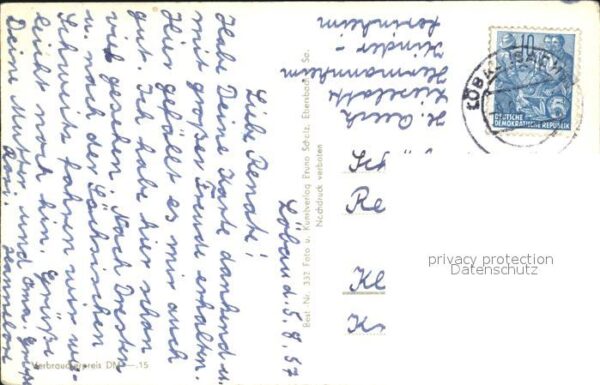 Löbau d. 5.8.57
Liebe Renate!
Habe Deine Karte dankend u.
mit großer Freude erhalten.
Hier gefällt es mir auch
gut. Ich habe hier schon
viel gesehen. Nach Dresden
u. nach der Sächsischen
Schweiz fahren wir vielleicht
noch hin. Grüße
Deine Mutter und Oma.
Hannelore
H. Auch
Lieselotte
Hermannheim
Kinder-
Best. Nr. 337 Foto u. Kunstverlag Bruno Scholz, Ebersbach Sa.
Nachdruck verboten
Verbraucherpreis DM —.15
Sch
Re
Kl
Kr
10
DEUTSCHE
DEMOKRATISCHE REPUBLIK
LÖBAU
privacy protection
Datenschutz